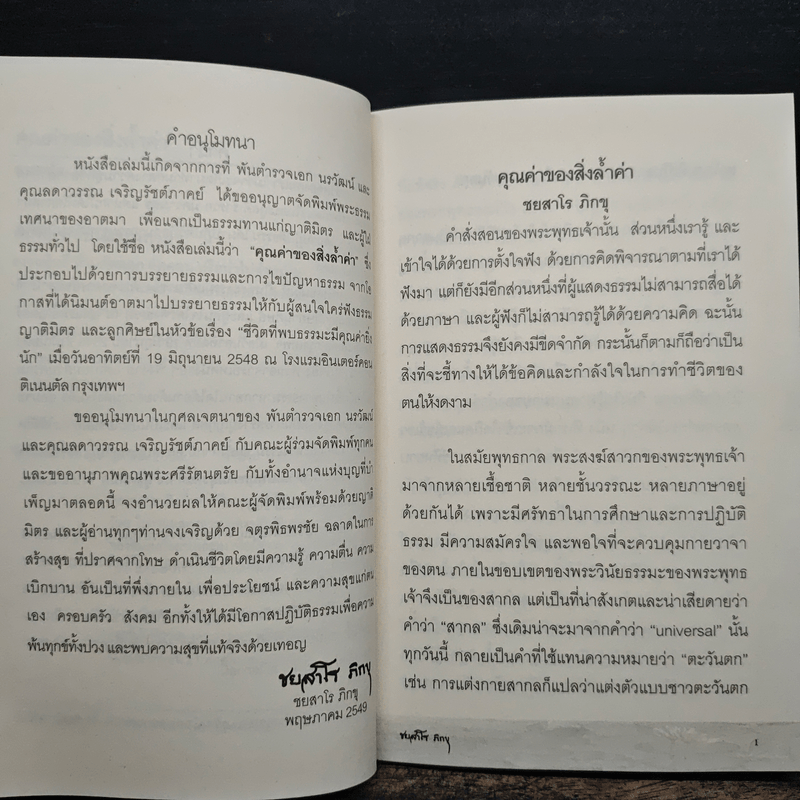 คำอนุโมทนา
หนังสือเล่มนี้เกิดจากการที่ พันตำรวจเอก นรวัฒน์ และ
คุณลดาวรรณ เจริญรัชต์ภาคย์ ได้ขออนุญาตจัดพิมพ์พระธรรม
เทศนาของอาตมา เพื่อแจกเป็นธรรมทานแก่ญาติมิตร และผู้ใฝ่
ธรรมทั่วไป โดยใช้ชื่อ หนังสือเล่มนี้ว่า “คุณค่าของสิ่งล้ำค่า” ซึ่ง
ประกอบไปด้วยการบรรยายธรรมและการไขปัญหาธรรม จากโอ
กาสที่ได้นิมนต์อาตมาไปบรรยายธรรมให้กับผู้สนใจใคร่ฟังธรรม
ญาติมิตร และลูกศิษย์ในหัวข้อเรื่อง “ชีวิตที่พบธรรมะมีคุณค่ายิ่ง
นัก” เมื่อวันอาทิตย์ที่ 19 มิถุนายน 2548 ณ โรงแรมอินเตอร์คอน
ติเนนตัล กรุงเทพฯ
ขออนุโมทนาในกุศลเจตนาของ พันตำรวจเอก นรวัฒน์
และคุณลดาวรรณ เจริญรัชต์ภาคย์ กับคณะผู้ร่วมจัดพิมพ์ทุกคน
และขออานุภาพคุณพระศรีรัตนตรัย กับทั้งอำนาจแห่งบุญที่บำ
เพ็ญมาตลอดนี้ จงอำนวยผลให้คณะผู้จัดพิมพ์พร้อมด้วยญาติ
มิตร และผู้อ่านทุกๆท่านจงเจริญด้วย จตุรพิธพรชัย ฉลาดในการ
สร้างสุข ที่ปราศจากโทษ ดำเนินชีวิตโดยมีความรู้ ความตื่น ความ
เบิกบาน อันเป็นที่พึ่งภายใน เพื่อประโยชน์ และความสุขแก่ตน
เอง ครอบครัว สังคม อีกทั้งให้ได้มีโอกาสปฏิบัติธรรมเพื่อความ
พ้นทุกข์ทั้งปวง และพบความสุขที่แท้จริงด้วยเทอญ
ชยสาโร ภิกขุ
ชยสาโร ภิกขุ
พฤษภาคม 2549
คุณค่าของสิ่งล้ำค่า
ชยสาโร ภิกขุ
คำสั่งสอนของพระพุทธเจ้านั้น ส่วนหนึ่งเรารู้ และ
เข้าใจได้ด้วยการตั้งใจฟัง ด้วยการคิดพิจารณาตามที่เราได้
ฟังมา แต่ก็ยังมีอีกส่วนหนึ่งที่ผู้แสดงธรรมไม่สามารถสื่อได้
ด้วยภาษา และผู้ฟังก็ไม่สามารถรู้ได้ด้วยความคิด ฉะนั้น
การแสดงธรรมจึงยังคงมีขีดจำกัด กระนั้นก็ตามก็ถือว่าเป็น
สิ่งที่จะชี้ทางให้ได้ข้อคิดและกำลังใจในการทำชีวิตของ
ตนให้งดงาม
ในสมัยพุทธกาล พระสงฆ์สาวกของพระพุทธเจ้า
มาจากหลายเชื้อชาติ หลายชั้นวรรณะ หลายภาษาอยู่
ด้วยกันได้ เพราะมีศรัทธาในการศึกษาและการปฏิบัติ
ธรรม มีความสมัครใจ และพอใจที่จะควบคุมกายวาจา
ของตน ภายในขอบเขตของพระวินัยธรรมะของพระพุทธ
เจ้าจึงเป็นของสากล แต่เป็นที่น่าสังเกตและน่าเสียดายว่า
คำว่า “สากล” ซึ่งเดิมน่าจะมาจากคำว่า “universal” นั้น
ทุกวันนี้ กลายเป็นคำที่ใช้แทนความหมายว่า “ตะวันตก”
เช่น การแต่งกายสากลก็แปลว่าแต่งตัวแบบชาวตะวันตก
ชยสาโร ภิกขุ
1